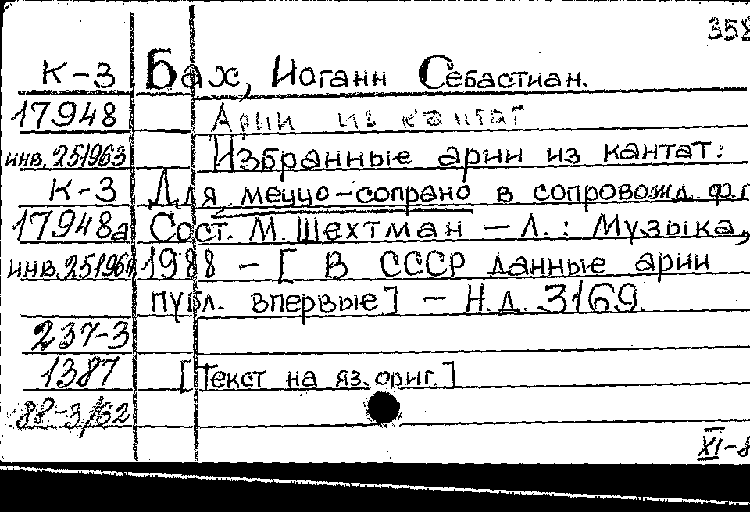 358
К-3 Бах, Иоганн Себастиан.
17948 Арии из кантат
инв. 251963 Избранные арии из кантат:
К-3 Для меццо-сопрано в сопровожд. ф.п
17948а Сост. М. Шехтман - Л.: Музыка,
инв. 251964 1988 - [ В СССР данные арии
публ. впервые] - Н.д. 3169.
237-3
1387 [Текст на яз. ориг.]
88-3/62
XI-8